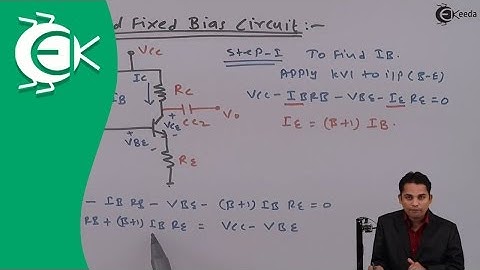 d Fixed Bias Circuit :-
EKeeda
VCC
Step-I To Find IB.
IC
RC
APPLY KVL to i/p (B-E)
IB
VCC - IB RB - VBE - IE RE = 0
CC2
Vo
VCE
IE = (B+1) IB.
VBE
RE
- IB RB - VBE - (B+1) IB RE = 0
RB + (B+1) IB RE = VCC - VBE